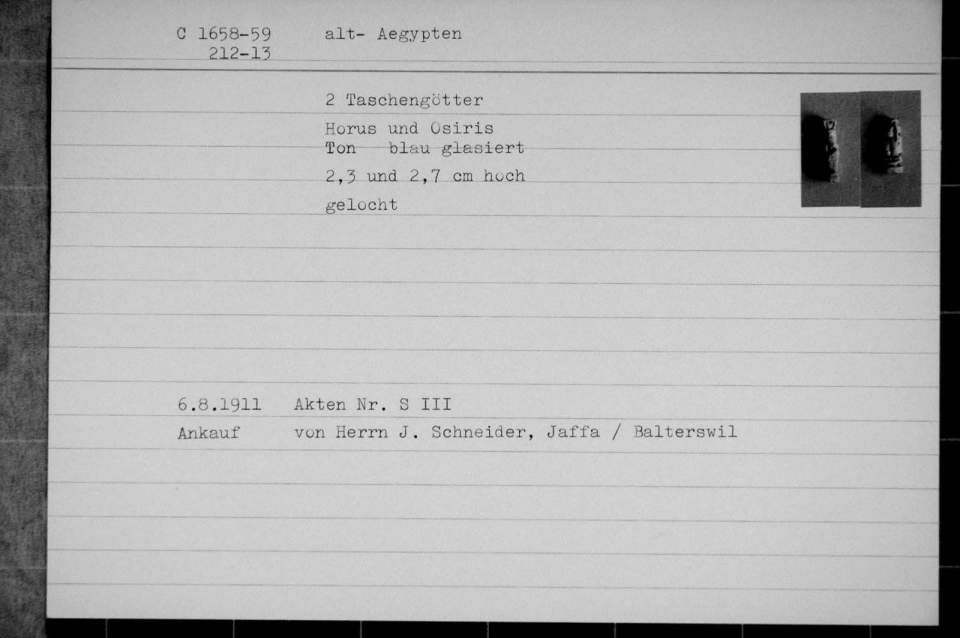 C 1658-59 alt- Aegypten
212-13
2 Taschengötter
Horus und Osiris
Ton blau glasiert
2,3 und 2,7 cm hoch
gelocht
6.8.1911 Akten Nr. S III
Ankauf von Herrn J. Schneider, Jaffa / Balterswil